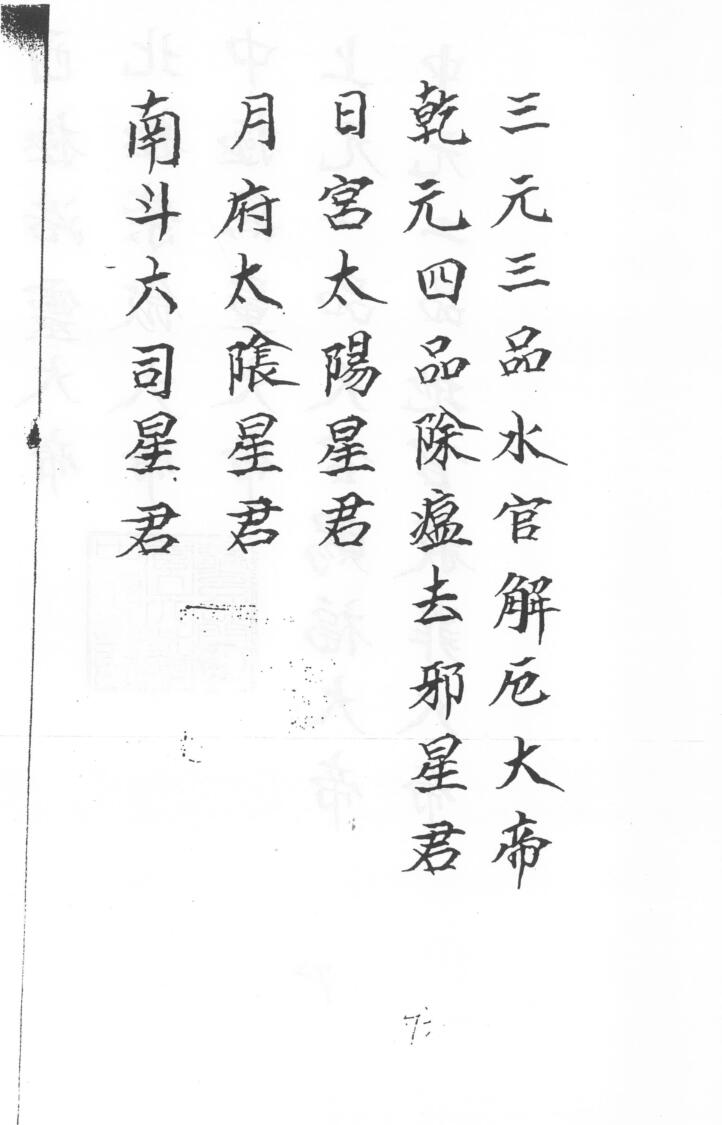 三元三品水官解厄大帝
乾元四品除瘟去邪星君
日宮太陽星君
月府太陰星君
南斗六司星君